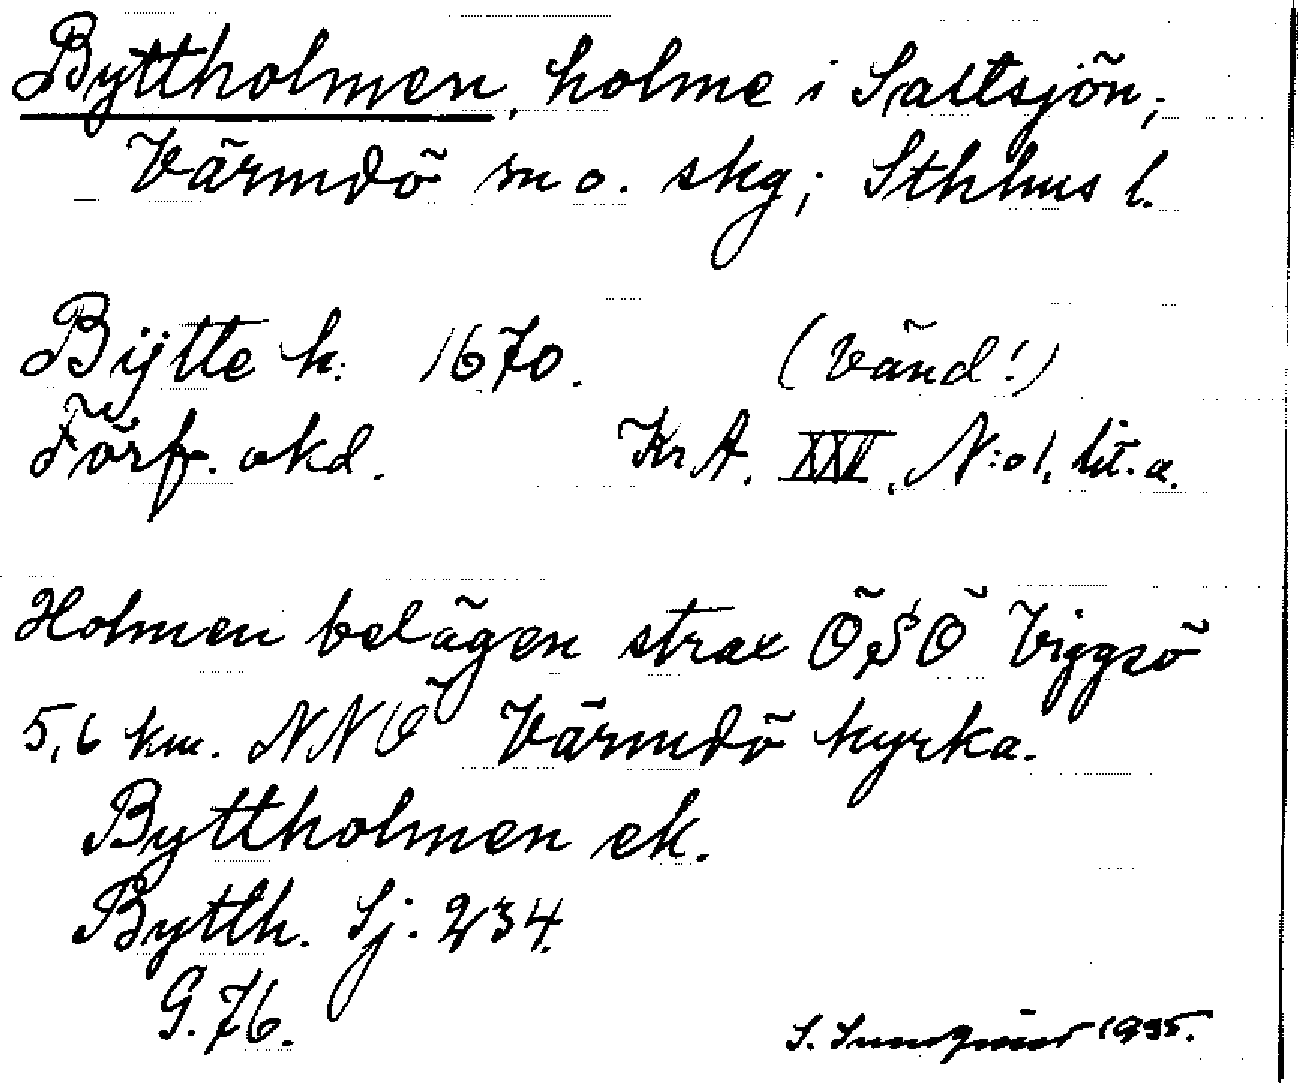 Byttholmen, holme i Saltsjön,
Värmdö sn o. skg; Sthlms l.
Bÿtte h: 1670. (Vänd!)
Förf. okd. Kr A. XXV, N:o 1. lit. a.
Holmen belägen strax ÖSÖ Viggsö
5,6 km. NNÖ Värmdö kyrka.
Byttholmen ek.
Bytth. Sj. 234.
G. 76.
S. 1935.